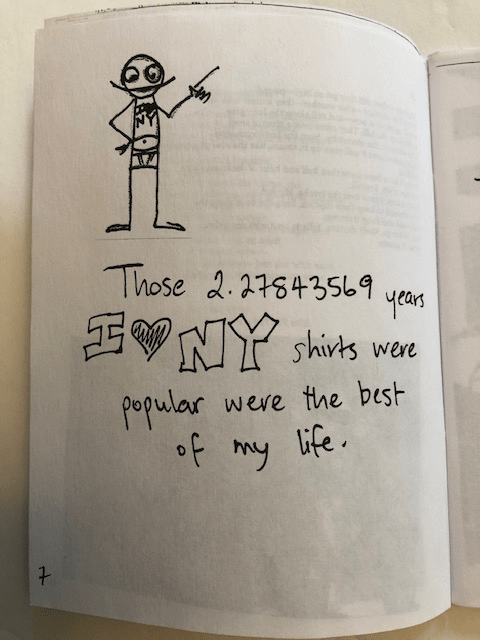 NY
Those 2.27843569 years
I ♥ NY shirts were
popular were the best
of my life.
7